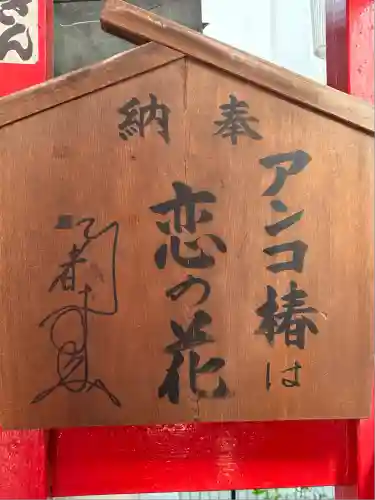 奉納
アンコ椿は
恋の花